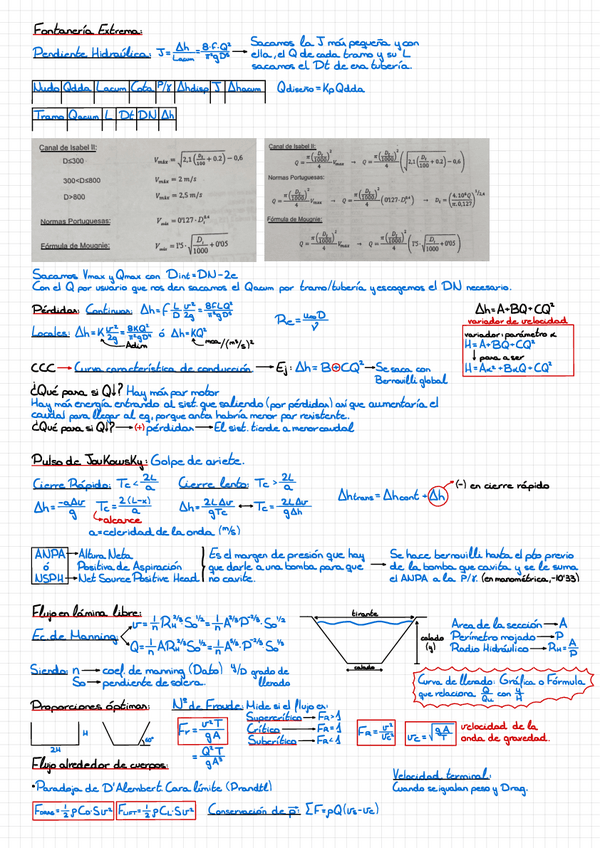 Fontanería Extrema:
Pendiente Hidráulica: J = Δh/Lacum = 8·f·Q²/π²gD⁵ → Sacamos la J más pequeña y con
ella, el Q de cada tramo y su L
sacamos el Dt de esa tubería.
Nudo Qdda Lacum Cota P/γ Δhdisp J Δhacum Qdiseño = Kp Qdda
Tramo Qacum L Dt DN Δh
Canal de Isabel II:
D≤300 Vmáx = √(2,1(Dt/100 + 0.2)) − 0,6
300<D≤800 Vmáx = 2 m/s
D>800 Vmáx = 2,5 m/s
Normas Portuguesas:
Fórmula de Mougnie:
Canal de Isabel II:
Normas Portuguesas:
Fórmula de Mougnie:
Sacamos Vmax y Qmax con Dint = DN − 2e
Con el Q por usuario que nos den sacamos el Qacum por tramo/tubería y escogemos el DN necesario.
Pérdidas: Continuas: Δh = f L/D v²/2g = 8fLQ²/π²gD⁵
Re = u∞D/ν
Δh = A+BQ+CQ²
variador de velocidad
Locales: Δh = K v²/2g = 8KQ²/π²gD⁴ ó Δh = KQ²
Adim
mca/(m³/s)²
variador: parámetro α
H = A+BQ+CQ²
↓ pasa a ser
H = Aα²+BαQ+CQ²
CCC → Curva característica de conducción → Ej: Δh = B⊕CQ² → Se saca con
Bernouilli global
¿Qué pasa si Q↓? Hay más par motor
Hay más energía entrando al sist que saliendo (por pérdidas) así que aumentaría el
caudal para llegar al eq, porque antes habría menor par resistente.
¿Qué pasa si Q↓? → (+) pérdidas → El sist. tiende a menor caudal
Pulso de Joukowsky: Golpe de ariete.
Cierre Rápido: Tc < 2L/a Cierre lento: Tc > 2L/a
Δh = −aΔv/g Tc = 2(L−x)/a Δh = 2LΔv/gTc ↔ Tc = −2LΔv/gΔh
alcance
a = celeridad de la onda (m/s)
Δhtrans = Δhcont + Δh (−) en cierre rápido
ANPA → Altura Neta
ó Positiva de Aspiración
NSPH → Net Source Positive Head
Es el margen de presión que hay
que darle a una bomba para que
no cavite.
Se hace bernouilli hasta el pto previo
de la bomba que cavita y se le suma
el ANPA a la P/γ (en manométrica, −10'33)
Flujo en lámina libre:
Ec de Manning
v = 1/n R_H^2/3 So^1/2 = 1/n A^2/3 P^-2/3 So^1/2
Q = 1/n A R_H^2/3 So^1/2 = 1/n A^5/3 P^-2/3 So^1/2
tirante
calado
(y)
calado
Area de la sección → A
Perímetro mojado → P
Radio Hidráulico → R_H = A/P
Siendo: n → coef. de manning (Dato) y/D grado de
llenado
So → pendiente de solera
Curva de llenado: Gráfica o Fórmula
que relaciona Q/QLL con y/H
Proporciones óptimas:
H
2H
60°
Nº de Froude: Mide si el flujo es:
Fr = v²T/gA
= Q²T/gA³
Supercrítico → Fr > 1
Crítico → Fr = 1
Subcrítico → Fr < 1
Fr = v²/vc² vc = √(gA/T) velocidad de la
onda de gravedad.
Flujo alrededor de cuerpos:
• Paradoja de D'Alembert. Capa límite (Prandtl)
Velocidad terminal:
Cuando se igualan peso y Drag.
FDRAG = 1/2 ρ C_D S v² FLIFT = 1/2 ρ C_L S v² Conservación de p: ΣF = ρQ(vs − ve)